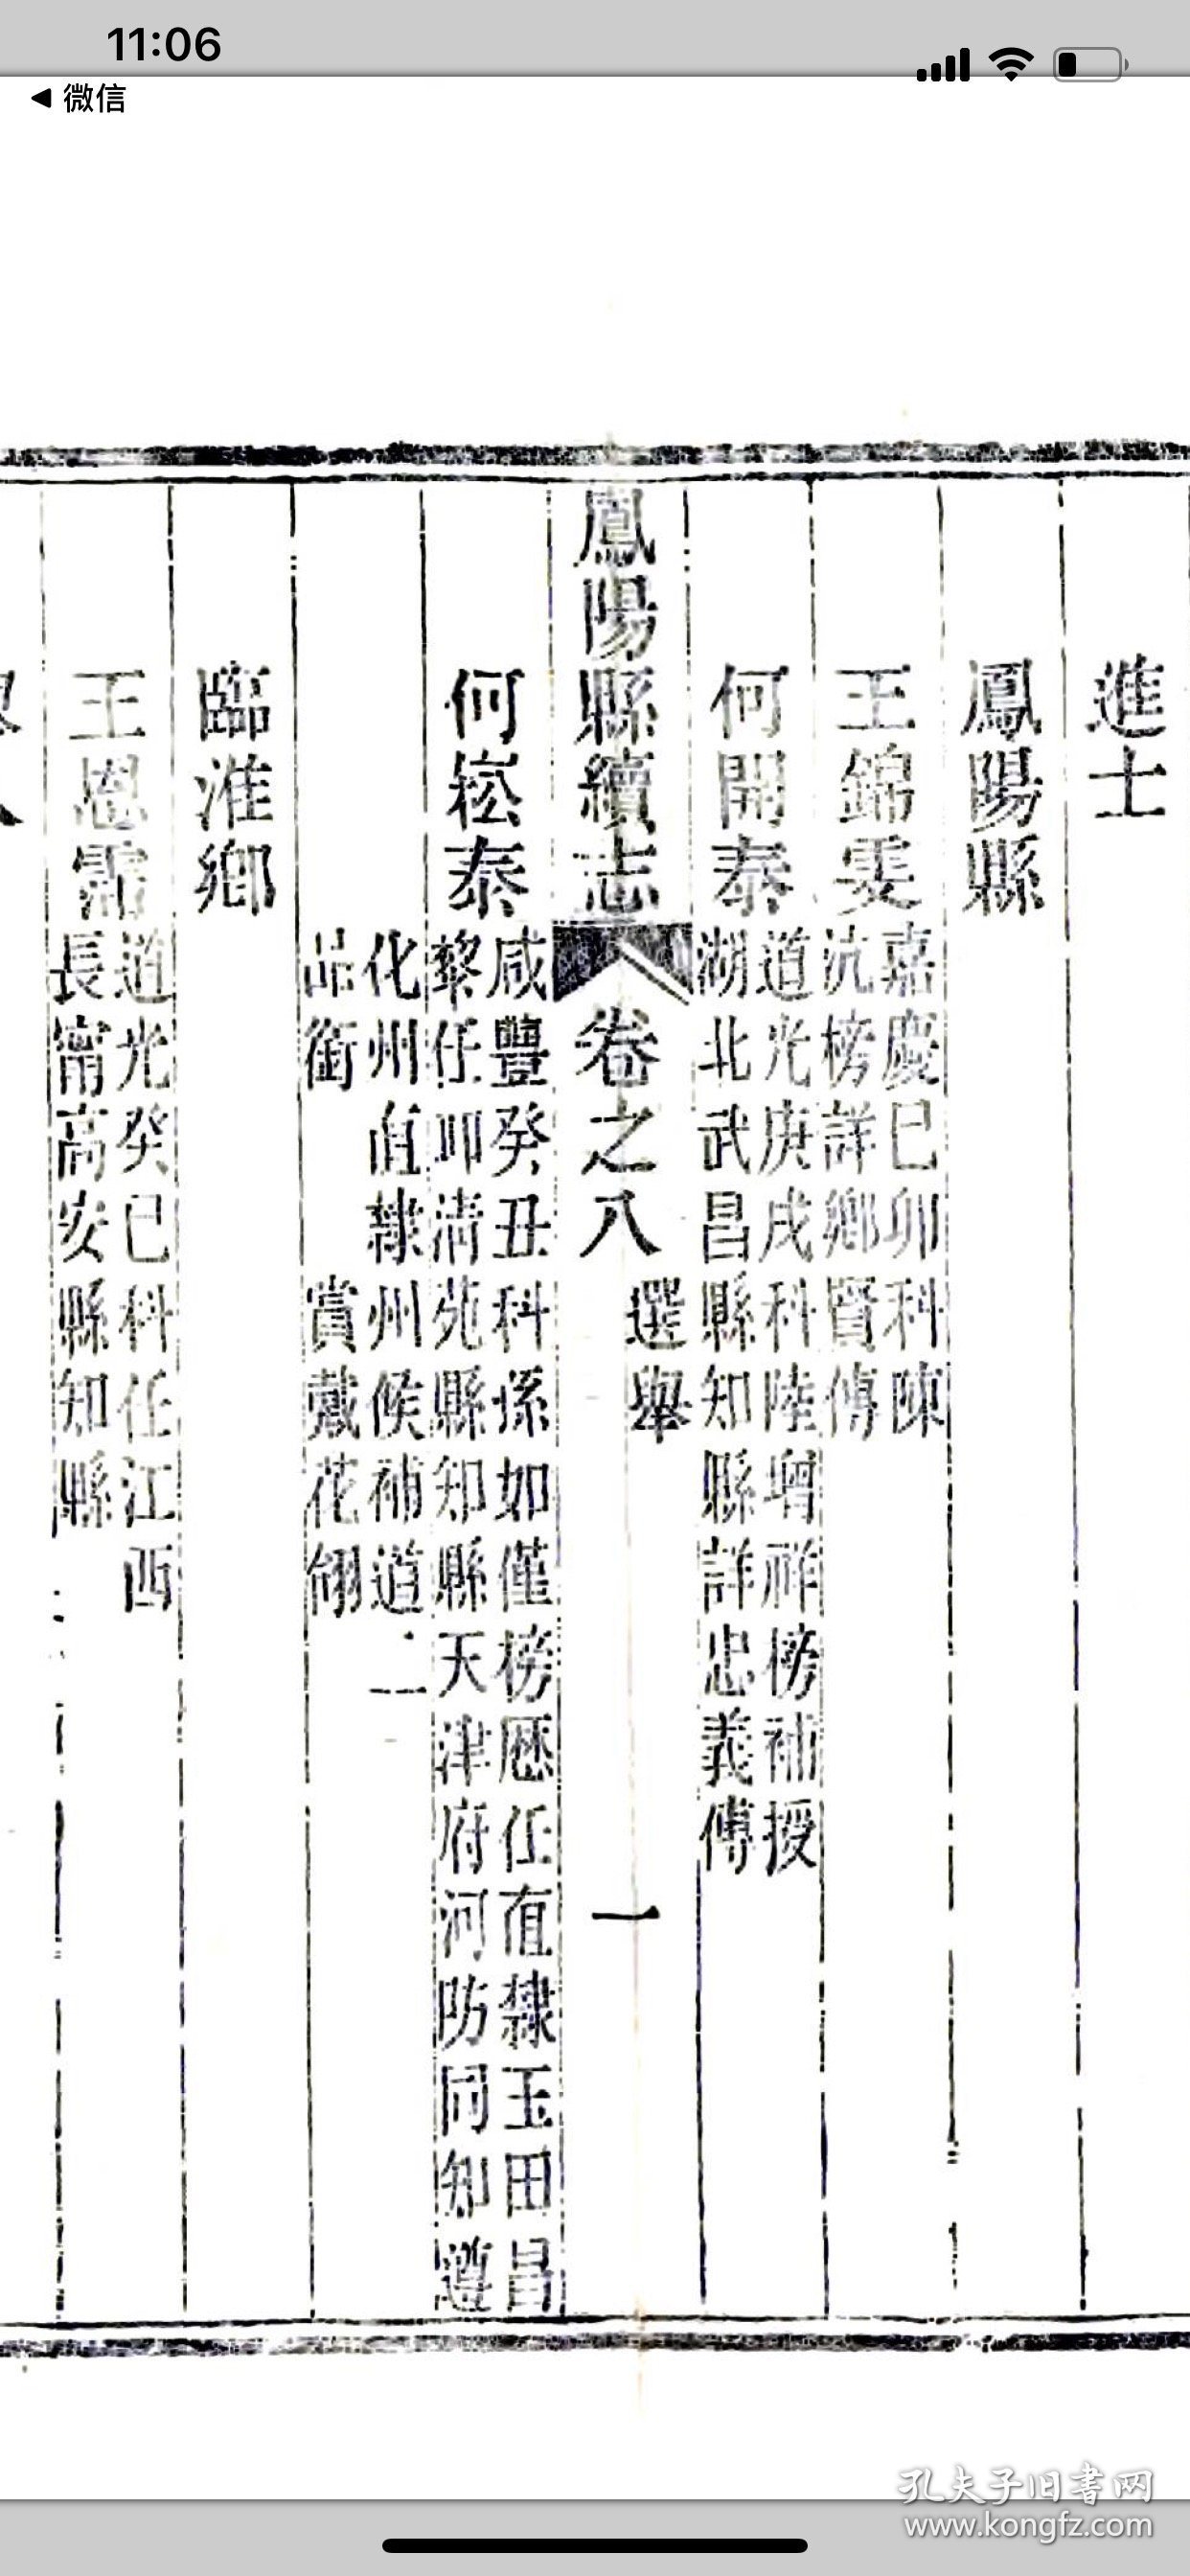 11:06
微信
進士
鳳陽縣
王錦雯 嘉慶已卯科陳
沆榜詳鄉賢傳
何開泰 道光庚戌科陸增祥榜補授
湖北武昌縣知縣詳忠義傳
鳳陽縣續志 卷之八 選舉 一
何崧泰 咸豐癸丑科孫如僅榜歷任直隸玉田昌
黎任邱清苑縣知縣天津府河防同知遵
化州直隸州候補道二
品銜 賞戴花翎
臨淮鄉
王恩霈 道光癸已科任江西
長甯高安縣知縣
孔夫子旧书网
www.kongfz.com